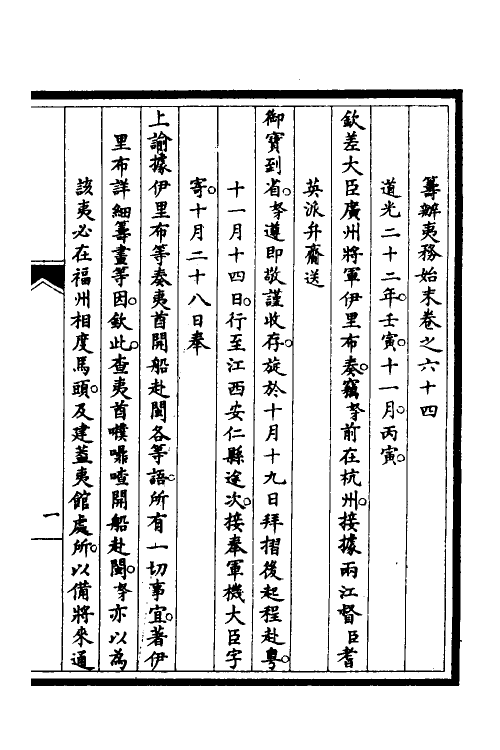 籌辦夷務始末卷之六十四
道光二十二年。壬寅。十一月。丙寅。
欽差大臣廣州將軍伊里布奏。竊孥前在杭州。接據兩江督臣耆
英派弁齎送
御寶到省。孥遵即敬謹收存。旋於十月十九日拜摺後起程赴粵。
十一月十四日。行至江西安仁縣途次。接奉軍機大臣字
寄。十月二十八日奉
上諭據伊里布等奏夷酋開船赴閩各等語。所有一切事宜。著伊
里布詳細籌畫等因。欽此。查夷酋㗶嚹喳開船赴閩。孥亦以為
該夷必在福州相度馬頭。及建蓋夷館處所。以備將來通
一